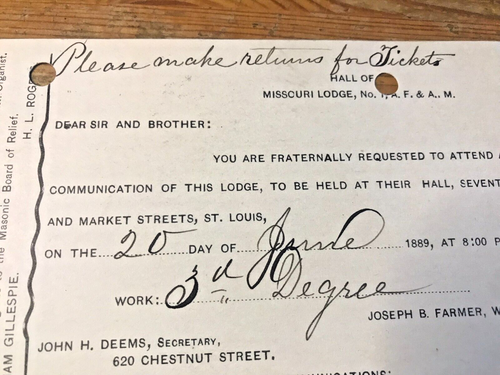 Please make returns for Tickets
HALL OF
MISSOURI LODGE, No. 1, A. F. & A. M.
DEAR SIR AND BROTHER:
YOU ARE FRATERNALLY REQUESTED TO ATTEND A
COMMUNICATION OF THIS LODGE, TO BE HELD AT THEIR HALL, SEVENT
AND MARKET STREETS, ST. LOUIS,
ON THE 20 DAY OF June 1889, AT 8:00 P
WORK: 3rd Degree
JOSEPH B. FARMER, W
JOHN H. DEEMS, SECRETARY,
620 CHESTNUT STREET.
H. L. ROGE
Organist.
to the Masonic Board of Relief.
AM GILLESPIE.